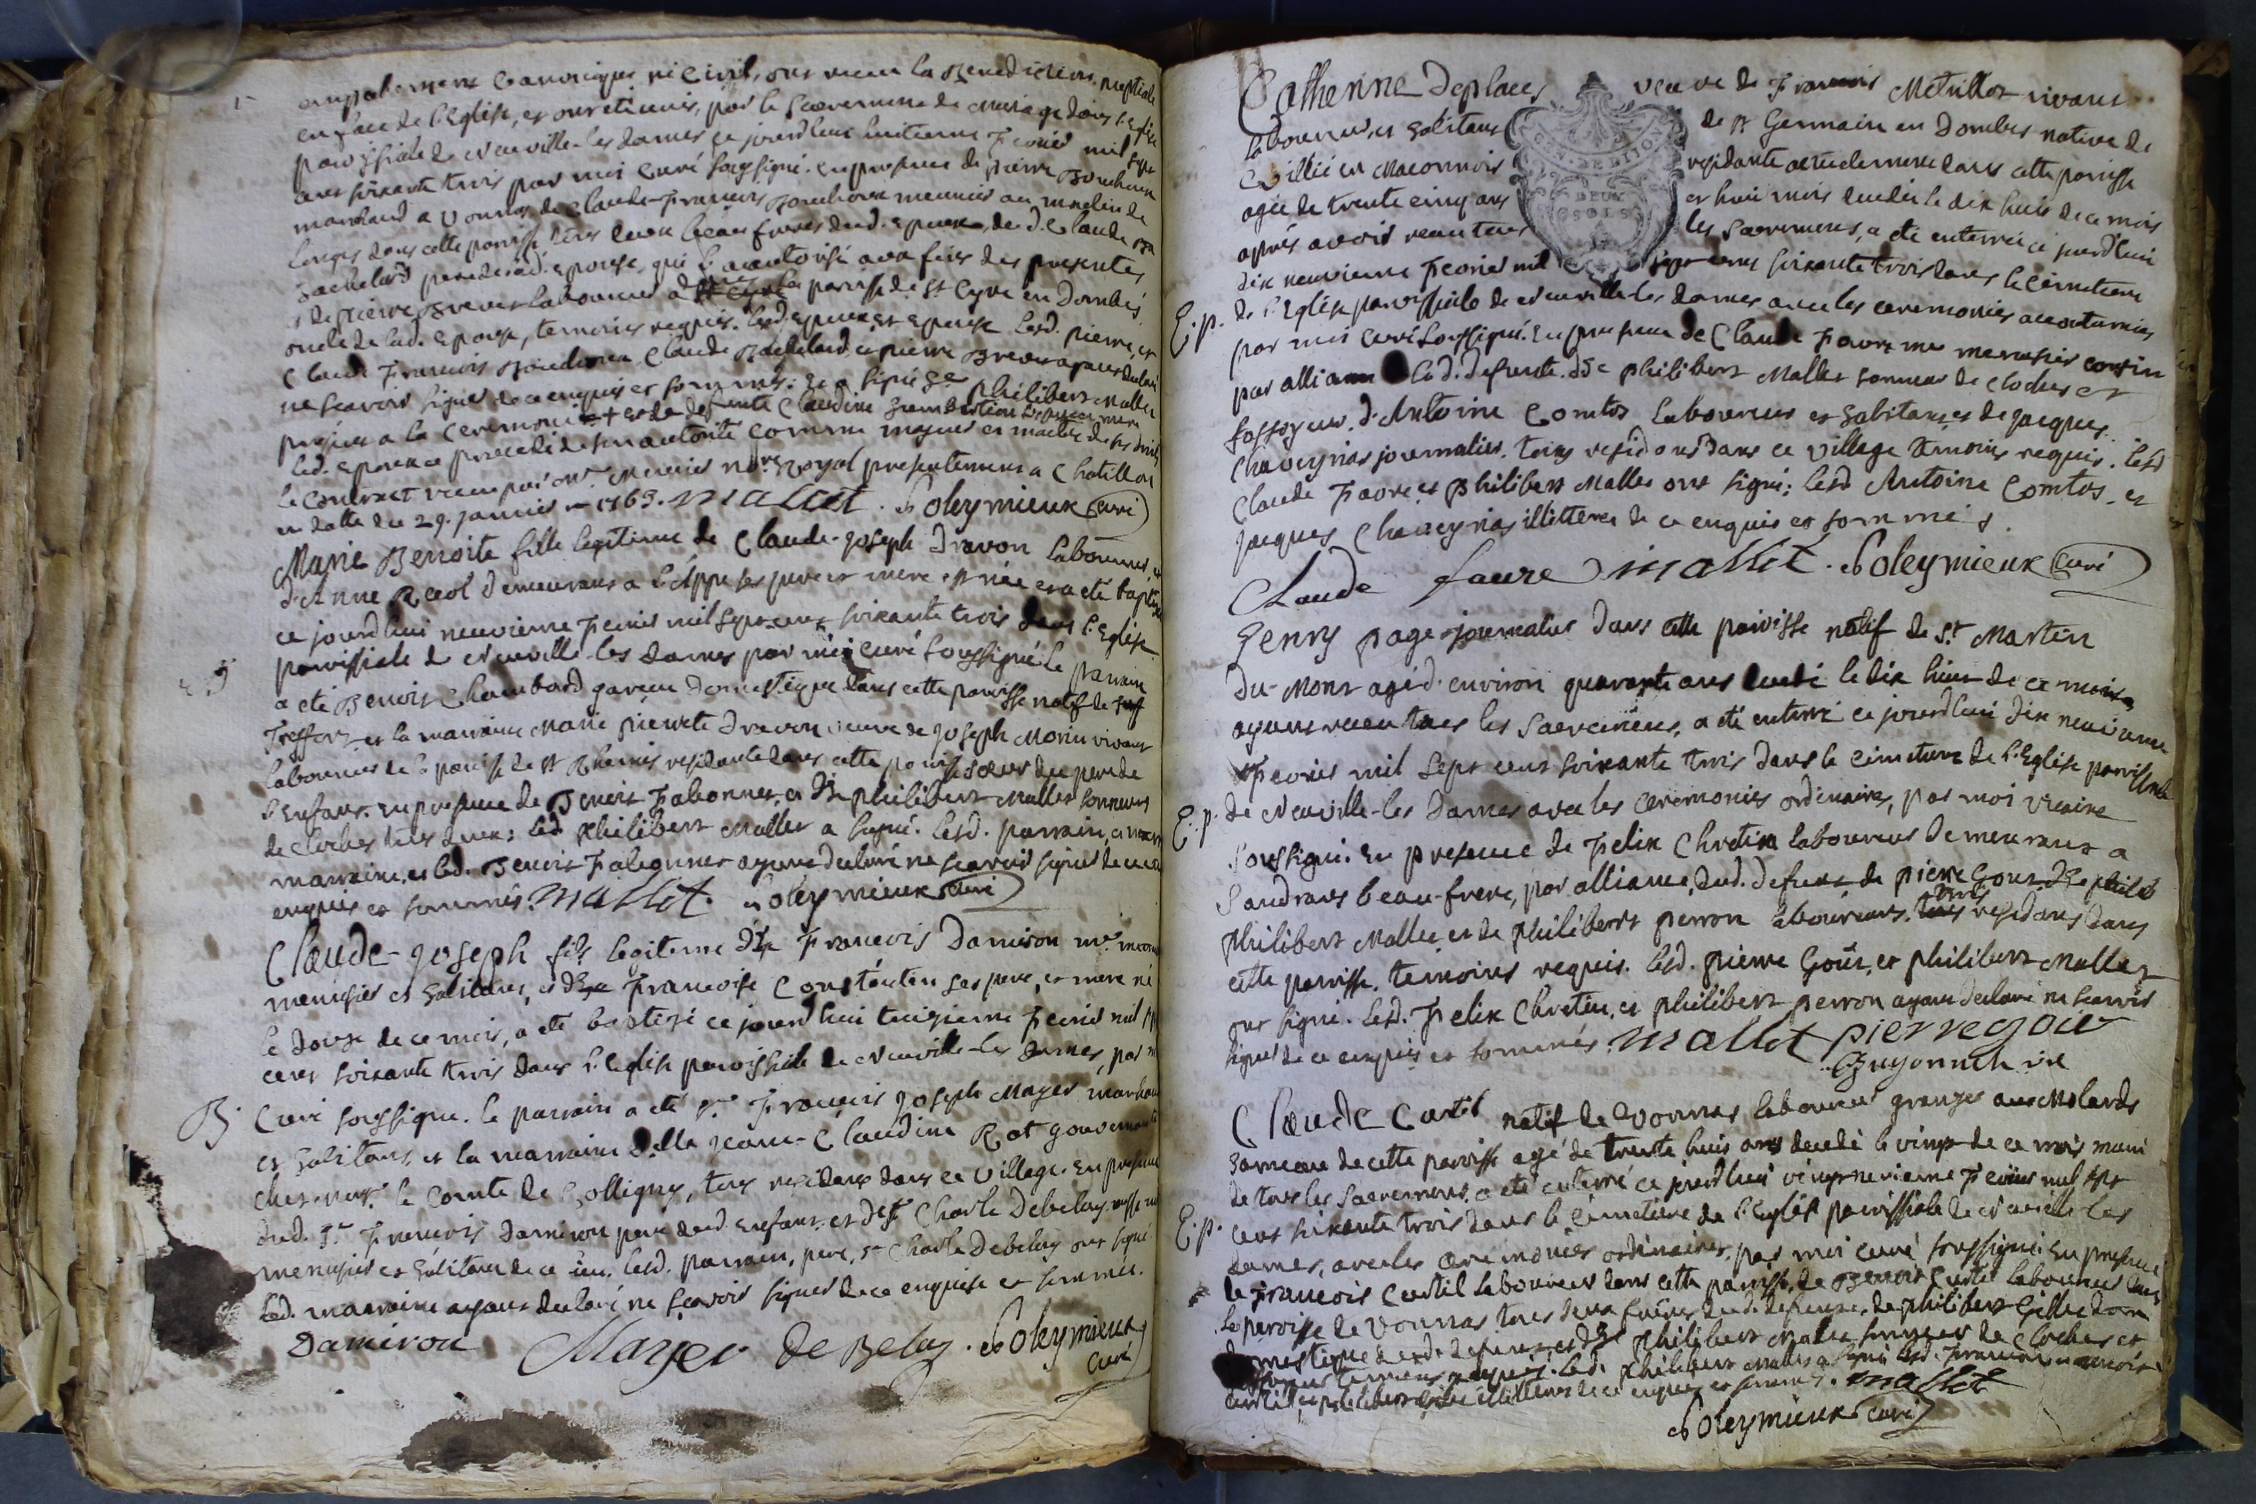 empechement Canonique ni Civil, ont recu la Benediction nuptiale
en face de l'Eglise, et ont été unis, par le Sacrement de Mariage dans l'eglise
paroissiale de Neuville-les Dames ce jourdhui huitieme Fevrier mil sept
cent soixante trois par moi Curé soussigné. En presence de pierre
marchand a Vonnas, de Claude-Francois meunier au moulin de
Longes dans cette paroisse tous deux beau freres dud. Epoux, de d. Claude
Bachelard pere de lad. epouse, qui l'a autorisé a la fin des presentes
et de pierre Brevet Laboureur a la paroisse de St Cyre en Dombes
oncle de lad. Epouse, temoins requis. Lesd. Epoux et Epouse Lesd. pierre, et
Claude Francois Claude Bachelard et pierre Brevet ayant declaré
ne scavoir signer de ce enquis et sommés. Et a signé Philibert Mallet
present a la ceremonie + et de defunte Claudine
Led. Epoux a procedé de son autorité comme majeur et maitre de ses droits
le Contract recu par Mr. nore. Royal presentement a Chatillon
en datte du 29. janvier 1763. Mallet. Poleymieux Curé
Marie Benoite fille legitime de Claude-joseph Dravon Laboureur, et
d'Anne Reol demeurans a ses pere et mere est née et a été baptisé
ce jourdhui neuvieme Fevrier mil sept cent soixante trois dans l'Eglise
paroissiale de Neuville-les Dames par moi Curé soussigné le parrain
a été Benoit Chambard garcon domestique dans cette paroisse natif de
Treffort et la marraine Marie pierrete Dravon veuve de joseph Morin vivant
laboureur de la paroisse de St residante dans cette paroisse soeur du pere de
l'Enfant. En presence de Benoit Falconnet, et de Philibert Mallet sonneur
de cloches tous deux: led. Philibert Mallet a signé. Lesd. parrain, et
marraine, et led. Benoit Falconnet ayant declaré ne scavoir signer de ce
enquis et sommés. Mallet. Poleymieux Curé
Claude-joseph fils legitime de Francois Damiron
menuisier et habitant, et de Francoise Constantin ses pere, et mere né
le douze de ce mois, a été baptisé ce jourdhui treizieme Fevrier mil sept
cent soixante trois dans l'Eglise paroissiale de Neuville-les Dames, par
B. Curé soussigné. le parrain a été Sr. Francois joseph Mayer marchand
et habitant, et la marraine Dlle jeanne-Claudine Rot gouvernante
chez le Comte de Colligny, tous residans dans ce Village. En presence
dud. Sr. Francois Damiron pere dud. Enfant, et de Sr Charle Debelay
menuisier et habitant de ce lieu. Lesd. parrain, pere, Sr Charle Debelay ont signé
Led. marraine ayant declaré ne scavoir signer de ce enquise et sommée.
Damiron Mayer De Belay. Poleymieux
Curé
Catherine Deplaces veuve de Francois Metrillot vivant
laboureur, et habitant de St Germain en Dombes native de
en Maconnois residante actuelement dans cette paroisse
agée de trente cinq ans et huit mois decedée le dix huit de ce mois
aprés avoir recu tous les Sacremens, a été enterrée ce jourdhui
dix neuvieme Fevrier mil sept cent soixante trois dans le cimetiere
E. p. de l'Eglise paroissiale de Neuville-les Dames avec les ceremonies accoutumées
par moi Curé Soussigné. En presence de Claude Favre me menuisier cousin
par alliance lad. defunte. de philibert Mallet sonneur de cloches et
fossoyeur, d'Antoine Comtos Laboureur et habitant, et de jacques
Chaveyrias journalier. tous residans dans ce Village temoins requis. Lesd
Claude Favre et Philibert Mallet ont signé; Lesd Antoine Comtos, et
jacques Chaveyrias illitterés de ce enquis et sommés.
Claude faure Mallet. Poleymieux Curé
Henry page journalier dans cette paroisse natif de St. Martin
Du-Mont agé d'environ quarante ans decedé le dix huit de ce mois
ayant recu tous les Sacremens, a été enterré ce jourdhui dix neuvieme
Fevrier mil sept cent soixante trois dans le cimetiere de l'Eglise paroissiale
E. p. de Neuville-les Dames avec les ceremonies ordinaires, par moi Vicaire
Soussigné. En presence de Felix Chretien laboureur demeurant a
Sandrans beau-frere, par alliance dud. defunt de pierre Gour, de
philibert Mallet et de philibert perron laboureurs. tous residans dans
cette paroisse. temoins requis. Lesd. pierre Goür, et philibert Mallet
ont signé. Lesd. Felix Chretien, et philibert perron ayant declaré ne scavoir
signer de ce enquis et sommés. Mallet pierre goür
Guyonnet vic
Claude Curtil natif de Vonnas laboureur granger aux Molards
hameau de cette paroisse agé de trente huit ans decedé le vingt de ce mois muni
de tous les Sacremens, a été enterré ce jourdhui vingt unieme Fevrier mil sept
E. p. cent soixante trois dans le cimetiere de l'Eglise paroissiale de Neuville les
Dames, avec les ceremonies ordinaires, par moi curé soussigné. En presence
de Francois Curtil laboureur dans cette paroisse, de Benoit Curtil laboureur dans
la paroisse de Vonnas tous deux freres dud. defunt, de philibert Gillet
domestique dud. defunt, et de Philibert Mallet sonneur de cloches et
fossoyeur temoins requis. Led. Philibert Mallet a signé Lesd. Francois, et Benoit
Curtil, et philibert illitterés de ce enquis et sommés. Mallet
Poleymieux Curé
GEN. DE DIJON
DEUX
SOLS